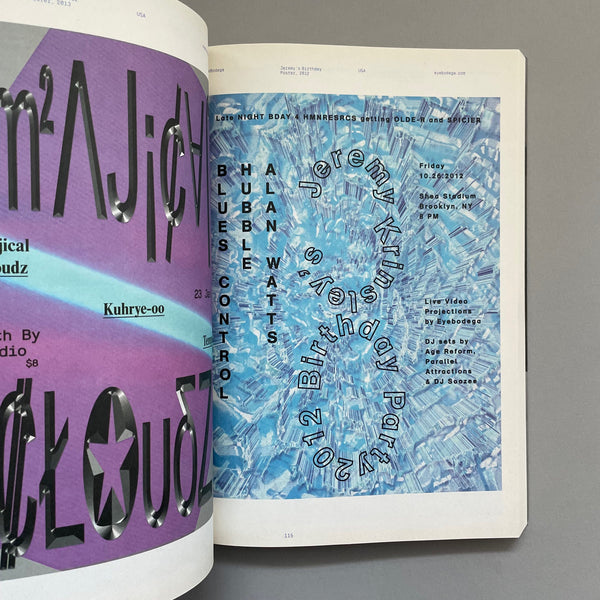 2012
USA
m²ΛJi₵
jical
oudz
Kuhrye-oo
23 Ja
th By
dio
$8
ŁOuδZ
bodega
Jeremy's Birthday
Poster, 2012
USA
eyebodega.com
Late NIGHT BDAY 4 HMNRESRCS getting OLDE-R and SPICIER
BLUES CONTROL
HUBBLE
ALAN WATTS
Jeremy Krinsley's
2012 Birthday Party
Friday
10.26.2012
Shea Stadium
Brooklyn, NY
8 PM
Live Video
Projections
by Eyebodega
DJ sets by
Age Reform,
Parallel
Attractions
& DJ Soozee
115